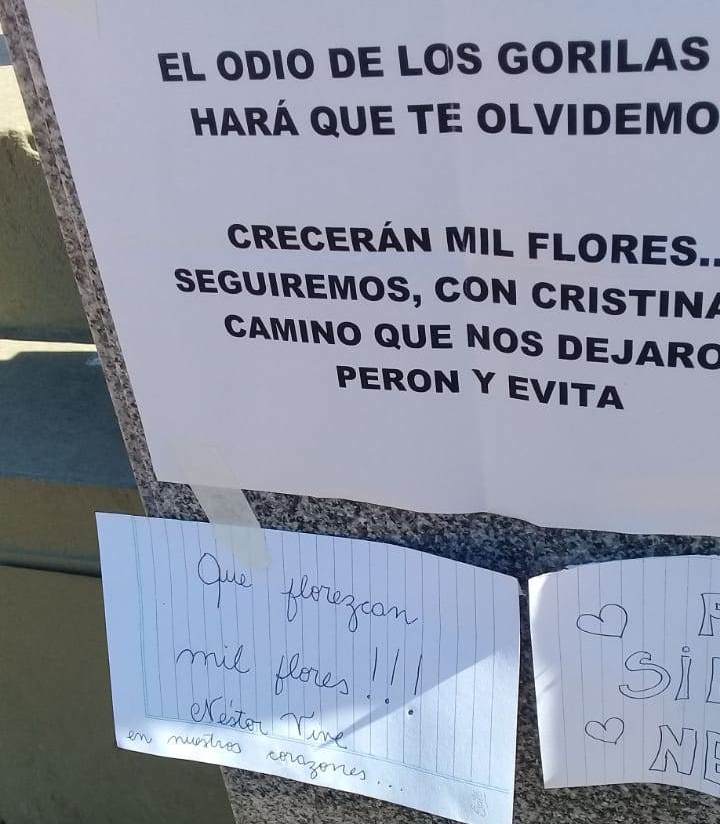 EL ODIO DE LOS GORILAS
HARÁ QUE TE OLVIDEMO
CRECERÁN MIL FLORES..
SEGUIREMOS, CON CRISTINA
CAMINO QUE NOS DEJARO
PERON Y EVITA
Que florezcan
mil flores!!!
Néstor Vive
en nuestros corazones...
SI
NE